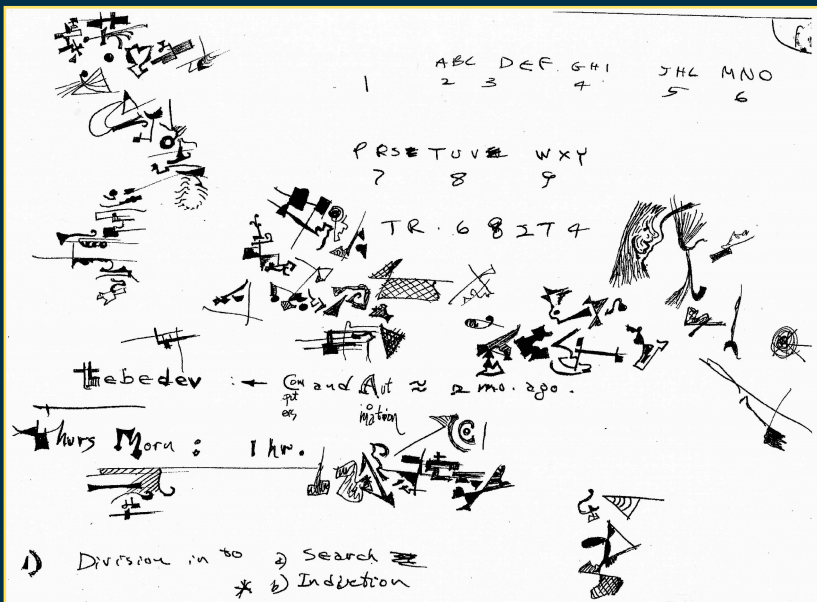 ABC DEF GHI JHL MNO
1 2 3 4 5 6
PRS TUV WXY
7 8 9
TR. 6 8 2 T 4
Lebedev : ← Computers and Automation ≈ 2 mo. ago.
Thurs Morn : 1 hr.
1) Division in to a) Search
* b) Induction